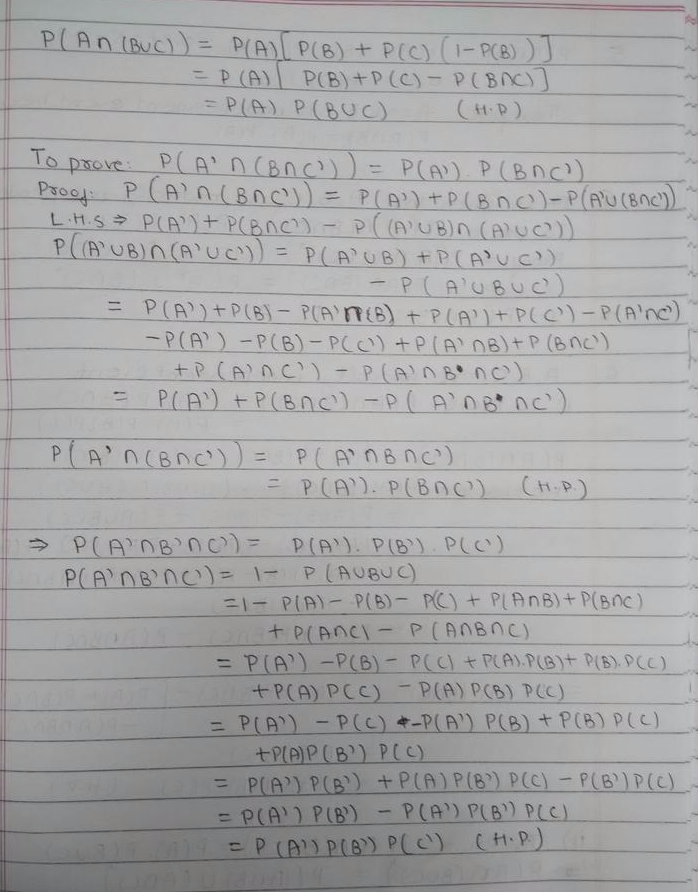 P(A∩(B∪C)) = P(A)[P(B) + P(C) (1-P(B))]
= P(A)[ P(B)+P(C) - P(B∩C)]
= P(A). P(B∪C) (H.P)
To prove: P(A' ∩(B∩C')) = P(A'). P(B∩C')
Proof: P(A' ∩(B∩C')) = P(A')+P(B∩C')-P(A'∪(B∩C'))
L.H.S ⇒ P(A')+P(B∩C') - P((A'∪B)∩(A'∪C'))
P((A'∪B)∩(A'∪C')) = P(A'∪B) + P(A'∪C')
- P(A'∪B∪C')
= P(A')+P(B)- P(A'∩B) + P(A')+P(C')-P(A'∩C')
-P(A') -P(B)-P(C') +P(A'∩B)+P(B∩C')
+P(A'∩C') - P(A'∩B∩C')
= P(A') +P(B∩C') -P(A'∩B∩C')
P(A' ∩(B∩C')) = P(A'∩B∩C')
= P(A'). P(B∩C') (H.P.)
⇒ P(A'∩B'∩C') = P(A'). P(B'). P(C')
P(A'∩B'∩C') = 1- P(A∪B∪C)
=1- P(A)- P(B)- P(C) + P(A∩B)+P(B∩C)
+P(A∩C)- P(A∩B∩C)
= P(A') -P(B)- P(C) +P(A).P(B)+ P(B).P(C)
+P(A) P(C) -P(A)P(B) P(C)
= P(A') -P(C) -P(A') P(B) + P(B) P(C)
+P(A)P(B') P(C)
= P(A')P(B') +P(A)P(B') P(C) -P(B')P(C)
= P(A') P(B') - P(A')P(B') P(C)
= P(A')P(B')P(C') (H.P.)